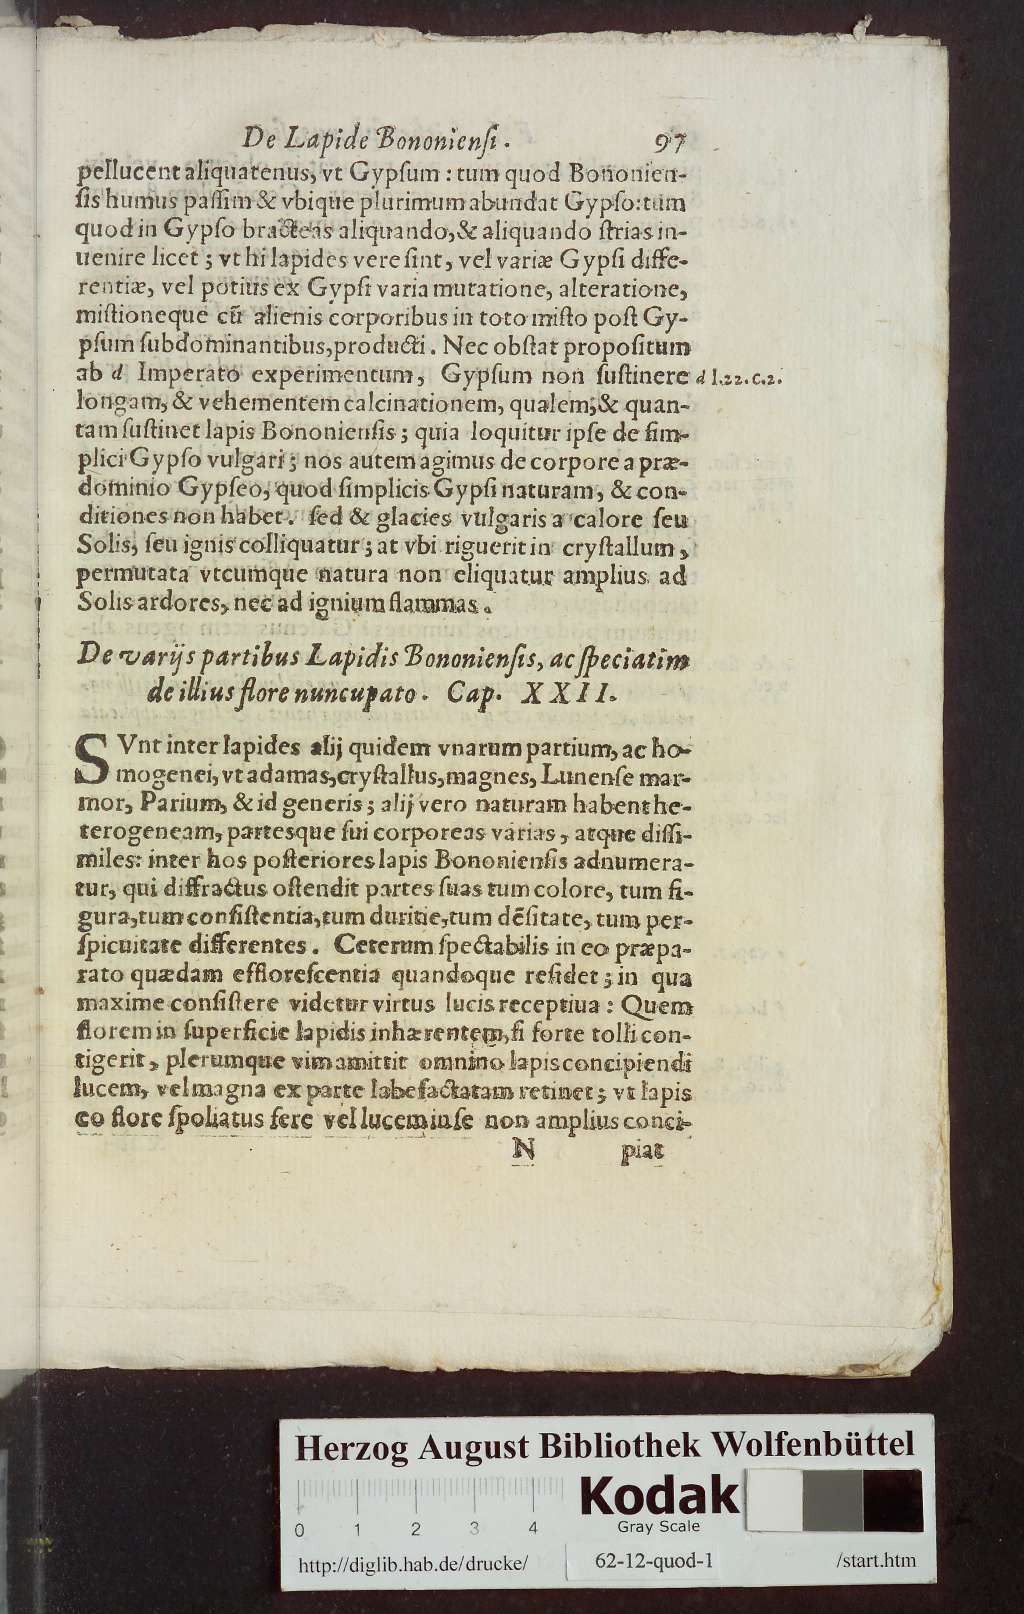 De Lapide Bononiensi. 97
pellucent aliquatenus, vt Gypsum: tum quod Bononien-
sis humus passim & vbique plurimum abundat Gypso: tum
quod in Gypso bracteas aliquando, & aliquando strias in-
uenire licet; vt hi lapides vere sint, vel variæ Gypsi diffe-
rentiæ, vel potius ex Gypsi varia mutatione, alteratione,
mistioneque cū alienis corporibus in toto misto post Gy-
psum subdominantibus, producti. Nec obstat propositum
ab d Imperato experimentum, Gypsum non sustinere d l.22.c.2.
longam, & vehementem calcinationem, qualem, & quan-
tam sustinet lapis Bononiensis; quia loquitur ipse de sim-
plici Gypso vulgari; nos autem agimus de corpore a præ-
dominio Gypseo, quod simplicis Gypsi naturam, & con-
ditiones non habet. sed & glacies vulgaris a calore seu
Solis, seu ignis colliquatur; at vbi riguerit in crystallum,
permutata vtcumque natura non eliquatur amplius ad
Solis ardores, nec ad ignium flammas.
De varijs partibus Lapidis Bononiensis, ac speciatim
de illius flore nuncupato. Cap. XXII.
SVnt inter lapides alij quidem vnarum partium, ac ho-
mogenei, vt adamas, crystallus, magnes, Lunense mar-
mor, Parium, & id generis; alij vero naturam habent he-
terogeneam, partesque sui corporeas varias, atque dissi-
miles: inter hos posteriores lapis Bononiensis adnumera-
tur, qui diffractus ostendit partes suas tum colore, tum fi-
gura, tum consistentia, tum duritie, tum dēsitate, tum per-
spicuitate differentes. Ceterum spectabilis in eo præpa-
rato quædam efflorescentia quandoque residet; in qua
maxime consistere videtur virtus lucis receptiua: Quem
florem in superficie lapidis inhærentem, si forte tolli con-
tigerit, plerumque vim amittit omnino lapis concipiendi
lucem, vel magna ex parte labefactatam retinet; vt lapis
eo flore spoliatus fere vel lucem in se non amplius conci-
N piat
Herzog August Bibliothek Wolfenbüttel
Kodak
Gray Scale
0 1 2 3 4
http://diglib.hab.de/drucke/ 62-12-quod-1 /start.htm